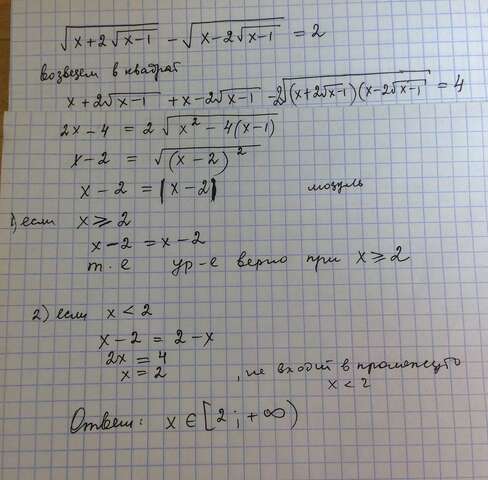 √(x+2√(x-1)) - √(x-2√(x-1)) = 2
возведем в квадрат
x+2√(x-1) + x-2√(x-1) - 2√((x+2√(x-1))(x-2√(x-1))) = 4
2x-4 = 2√(x²-4(x-1))
x-2 = √((x-2)²)
x-2 = |x-2| модуль
1) если x ⩾ 2
x-2 = x-2
т.е ур-е верно при x ⩾ 2
2) если x < 2
x-2 = 2-x
2x = 4
x = 2 , не входит в промежуто
x < 2
Ответ: x ∈ [2; +∞)